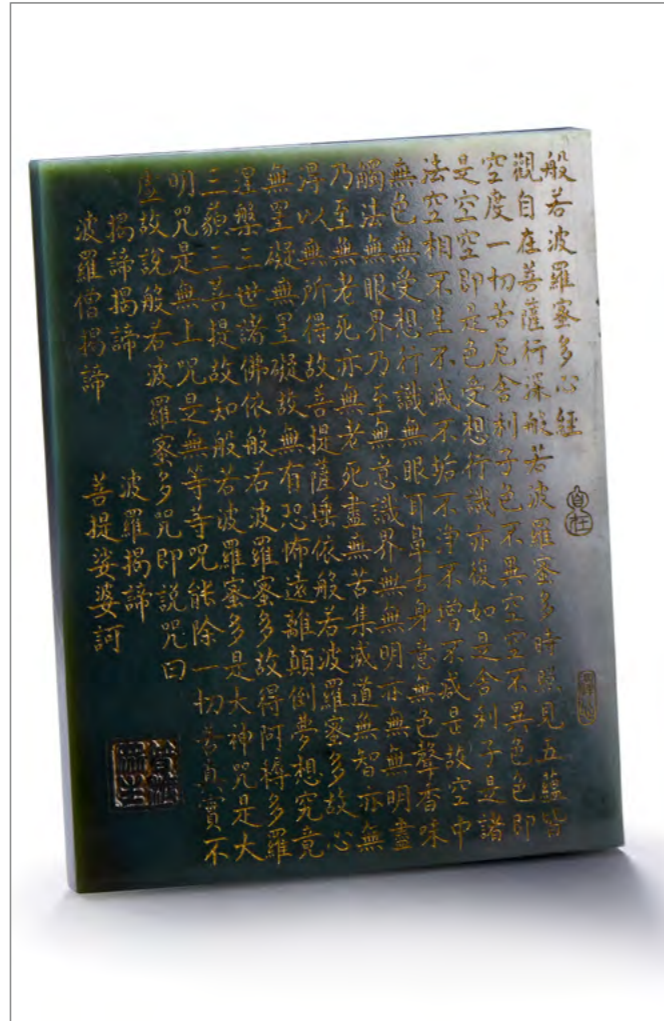 般若波羅蜜多心經
自在
觀自在菩薩行深般若波羅蜜多時照見五蘊皆
空度一切苦厄舍利子色不異空空不異色色即
是空空即是色受想行識亦復如是舍利子是諸
法空相不生不滅不垢不淨不增不減是故空中
無色無受想行識無眼耳鼻舌身意無色聲香味
觸法無眼界乃至無意識界無無明亦無無明盡
乃至無老死亦無老死盡無苦集滅道無智亦無
得以無所得故菩提薩埵依般若波羅蜜多故心
無罣礙無罣礙故無有恐怖遠離顛倒夢想究竟
涅槃三世諸佛依般若波羅蜜多故得阿耨多羅
三藐三菩提故知般若波羅蜜多是大神咒是大
明咒是無上咒是無等等咒能除一切苦真實不
虛故說般若波羅蜜多咒即說咒曰
揭諦揭諦 波羅揭諦
波羅僧揭諦 菩提娑婆訶